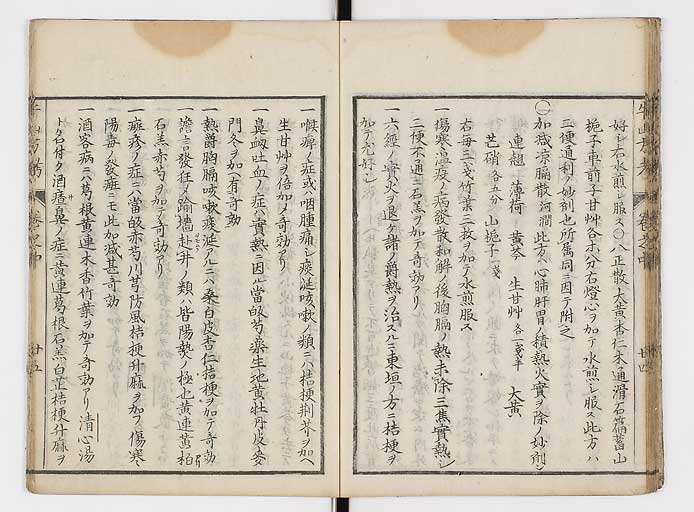 好シ右水煎シ服ス〇八正散大黄杏仁木通滑石萹蓄山
梔子車前子甘艸各等分右燈心ヲ加テ水煎シ服ス此方ハ
三便通利ノ妙剤也所属同ニ因テ附之
〇加减凉膈散河澗此方ハ心肺肝胃ノ積熱火實ヲ除ノ妙劑シ
連翹 薄荷 黄芩 生甘艸各一戔半 大黄
芒硝各五分 山梔子一戔
右毎三戔竹葉三枚ヲ加テ水煎服ス
一傷寒温疫ノ病發散和解ノ後胸膈ノ熱未除三焦實熱シ
三便不通ニ石羔ヲ加テ奇効アリ
一六經ノ實火ヲ退ケ諸ノ爵熱ヲ治スルニ東垣ノ方ニ桔梗ヲ
加テ尤好シ
廿四
一喉痺ノ症或ハ咽腫痛シ痰涎咳嗽ノ類ニハ桔梗荆芥ヲ加ヘ
生甘艸ヲ倍加メ奇効アリ
一鼻衂吐血ノ症ハ實熱ニ因ル當皈芍藥生地黄牡丹皮麥
門冬ヲ加ヘ有奇効
一熱爵胸膈咳嗽痰涎アルニハ桑白皮杏仁桔梗ヲ加テ奇効
一譫ニ發狂ノ踰墻赴井ノ類ハ皆陽熱ノ極也黄連黄柏
石羔赤芍ヲ加テ奇効アリ
一斑疹ノ症ニハ當皈赤芍川芎防風桔梗升麻ヲ加フ傷寒
陽毒ノ發斑ニモ此加减甚奇効
一酒客病ニハ葛根黄連木香竹葉ヲ加テ奇効アリ清心湯
ト名付ク酒齄鼻ノ症ニ黄連葛根石羔白芷桔梗升麻ヲ
廿五